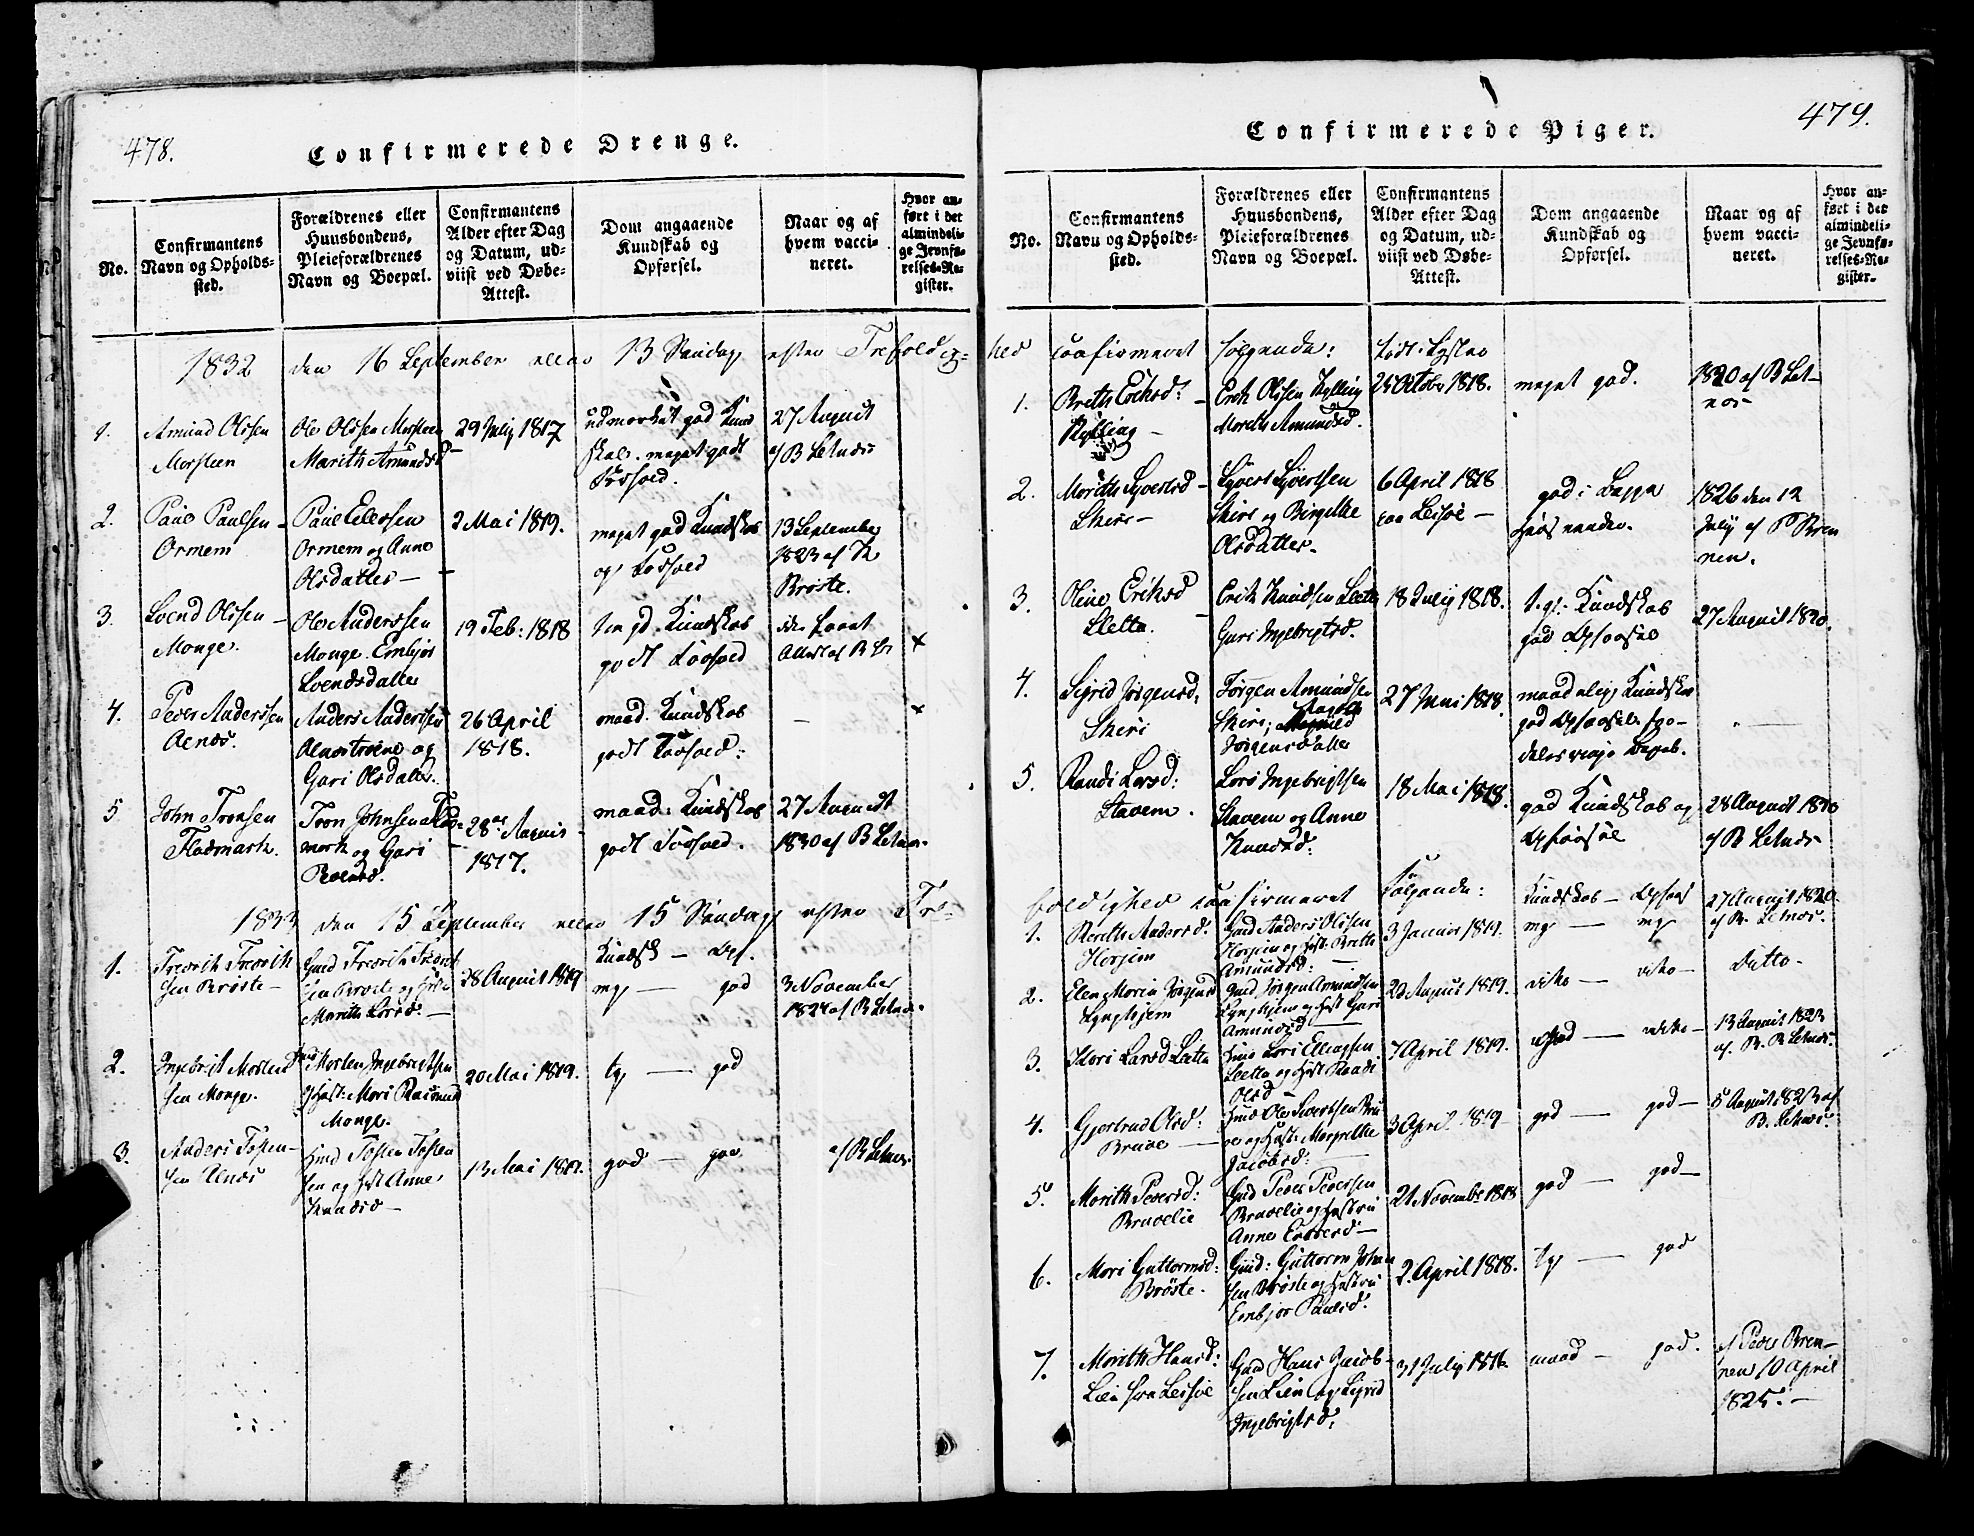 478.
Confirmerede Drenge.
No.
Confirmantens
Navn og Opholds-
sted.
Forældrenes eller
Huusbondens,
Pleieforældrenes
Navn og Boepæl.
Confirmantens
Alder efter Dag
og Datum, ud-
viist ved Døbe-
Attest.
Dom angaaende
Kundskab og
Opførsel.
Naar og af
hvem vacci-
neret.
Hvor an-
ført i det
almindeli-
ge Jevnfø-
relses-Re-
gister.
1832 den 16 September eller 13 Søndag efter Trefoldig-
1.
Amund Olsen
Morsteen
Ole Olsen Morsteen
Marith Amundsd
29 July 1817
udmærket god Kund
skab. meget godt
Forhold.
27 August
af B Letnes
2.
Paul Paulsen
Ormem
Paul Ellersen
Ormem og Anne
Olsdatter —
2 Mai 1819.
meget god Kundskab
og Forhold
13 September
1823 af
Brøste.
3.
Svend Olsen
Monge.
Ole Anderssen
Monge. Embjør
Svendsdatter
19 Feb: 1818
Kundskab
godt Forhold
4.
Peder Anderssen
Aenæs.
Anders Anderssen
og
Gari Olsdatter.
26 April
1818.
maad. Kundskab
godt Forhold:
—
5
John Tronsen
Fladmark.
Tron Johnsen Flad-
mark og Gari
28de August
1817.
maad: Kundskab
godt Forhold.
27 August
1830 af B Letnes.
1833 den 15 September eller 15 Søndag efter Tre-
1.
Fredrik Fredrik
sen Brøste —
Gmd Fredrik Fredrik
sen Brøste og
Marith Larsd. —
28 August 1819
Kundsk — Opf.
mg — god
3 November
1824 af B Letnes.
2.
Ingebrigt Morten
sen Monge.
Morten Ingebrigtsen
Hust: Mari Rasmusd
Monge.
20 Mai 1819.
tg — god
3.
Anders Tosten-
sen Aenæs
Hmd Tosten Tosten
sen og Hust Anne
Knudsd —
13 Mai 1819.
god — god
af B Letnes
479.
Confirmerede Piger.
No.
Confirmantens
Navn og Opholds-
sted.
Forældrenes eller
Huusbondens,
Pleieforældrenes
Navn og Boepæl.
Confirmantens
Alder efter Dag
og Datum, ud-
viist ved Døbe-
Attest.
Dom angaaende
Kundskab og
Opførsel.
Naar og af
hvem vacci-
neret.
Hvor an-
ført i det
almindeli-
ge Jevnfø-
relses-Re-
gister.
hed confirmeret følgende:
1.
Brith Eriksd:
Kylling —
Erik Olsen Kylling
Marith Amundsd.
25 Octobr 1818.
meget god.
1820 af B Let-
nes
2.
Marith Syvertsd
Skire —
Syvert Syvertsen
Skire og Birgitte
Olsdatter.
6 April 1818
paa Lesjøe —
1826 den 12
July af P Bren
nen.
3.
Oline Eriksd
Sletta.
Erik Knudsen Sletta
Gari Ingebrigtsd.
18 July 1818.
Kundskab
god Opførsel
27 August 1820.
4.
Sigrid Jørgensd.
Skiri
Jørgen Amundsen
Skire,
Jørgensdatter
27 Juni 1818
maadelig Kundskab
god Opførsel
5.
Randi Larsd:
Stavem.
Lars Ingebrigtsen
Stavem og Anne
Knudsd:
18 Mai 1818.
god Kundskab og
Opførsel
28 August 1820
af B Letnes
foldighed confirmeret følgende:
Kundskab — Opførs
1.
Berith Andersd.
Horgjem
Gmd Anders Olsen
Horgjem og Hust. Britte
Amundsd: —
3 Januar 1819.
mg — mg
27 August 1820
af B. Letnes.
2.
Elen Maria Jørgensd
Gmd Jørgen Amundsen
og Hust Gari
Amundsd —
20 August 1819.
dito — dito —
Ditto.
3.
Kari Larsd Sletta
Sletta og Hust Randi
Olsd —
7 April 1819.
god —
13 August 1823
af B. Letnes.
4.
Gjertrud Olsd:
Bruøe —
Hmd Ole Sivertsen Bru
øe og Hust: Margrethe
Jacobsd: —
3 April 1819
god — god —
5 August 1823 af
B. Letnes.
5.
Marith Pedersd:
Bruøelie
Gmd Peder Pedersen
Bruøelie og Hustru
Anne
21 November 1818
god — god —
6.
Mari Guttormsd:
Brøste.
Gmd: Guttorm John
sen Brøste og Hustru
Embjør Paulsd.
2. April 1818.
tg — god
7.
Marith Hansd:
Lien fra Lesjøe
Gmd Hans Jacob-
sen Lien og Sigrid
Ingebrigtsd.
31 July 1816
maad — god.
af Peder Bren-
nen 10 April
1825. —